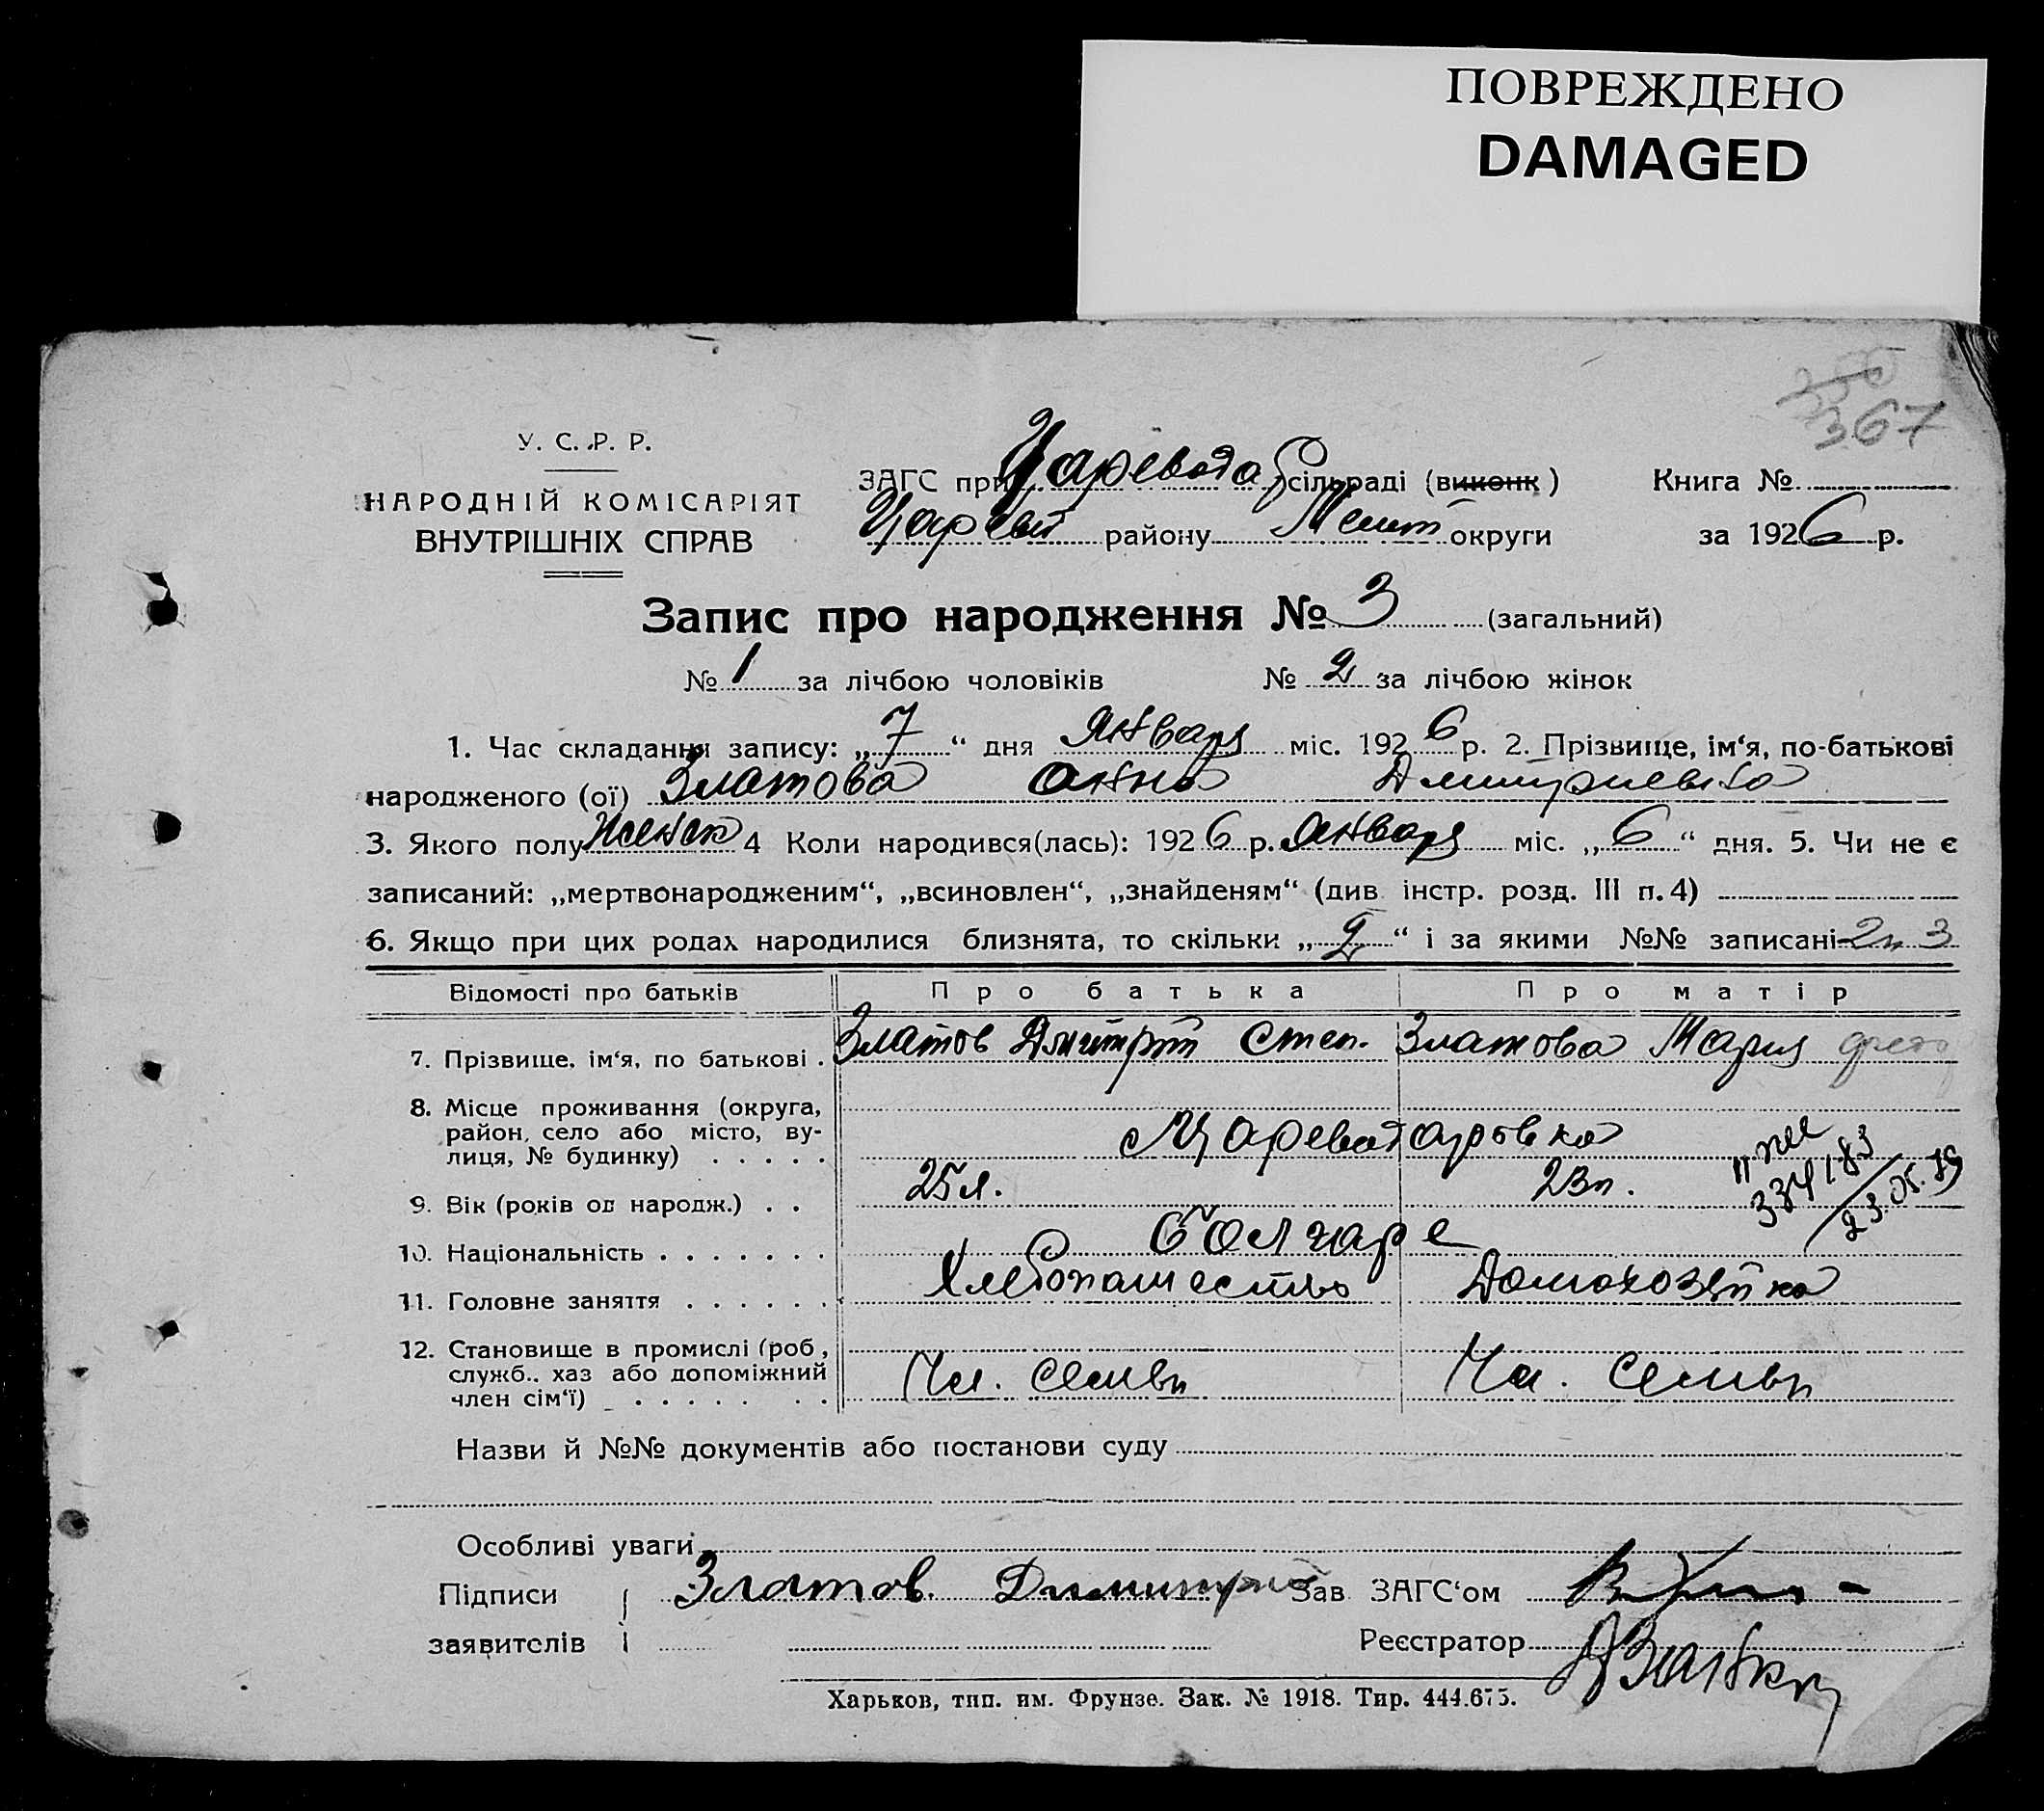 ПОВРЕЖДЕНО
DAMAGED
367
У. С. Р. Р.
НАРОДНІЙ КОМІСАРІЯТ
ВНУТРІШНІХ СПРАВ
ЗАГС при Царевода сільраді (виконк)
Книга №
Царев район у Мелит округи
за 1926 р.
Запис про народження № 3 (загальний)
№ 1 за лічбою чоловіків № 2 за лічбою жінок
1. Час складання запису: „7“ дня Января міс. 1926 р. 2. Прізвище, ім‘я, по-батькові
народженого (ої) Златова Анна Дмитриевна
3. Якого полу Женск 4 Коли народився(лась): 1926 р. Января міс. „6“ дня. 5. Чи не є
записаний: „мертвонародженим“, „всиновлен“, „знайденям“ (див. інстр. розд. III п. 4)
6. Якщо при цих родах народилися близнята, то скільки „2“ і за якими №№ записані 2 и 3
Відомості про батьків Про батька Про матір
7. Прізвище, ім‘я, по батькові . Златов Дмитрий Степ. Златова Мария
8. Місце проживання (округа,
район, село або місто, ву-
лиця, № будинку) . . . . . с Цареводаровка
9. Вік (років од народж.) . . 25 л. 23 л.
334183
23.05.89
10. Національність . . . . . . . болгаре
11. Головне заняття . . . . . . Хлебопашество Домохозяйка
12. Становище в промислі (роб,
служб.. хаз або допоміжний
член сім‘ї) . . . . . . . Чл. семьи Чл. семьи
Назви й №№ документів або постанови суду
Особливі уваги
Підписи Златов. Димитрий Зав. ЗАГС‘ом
заявителів Реєстратор
Харьков, тип. им. Фрунзе. Зак. № 1918. Тир. 444.675.